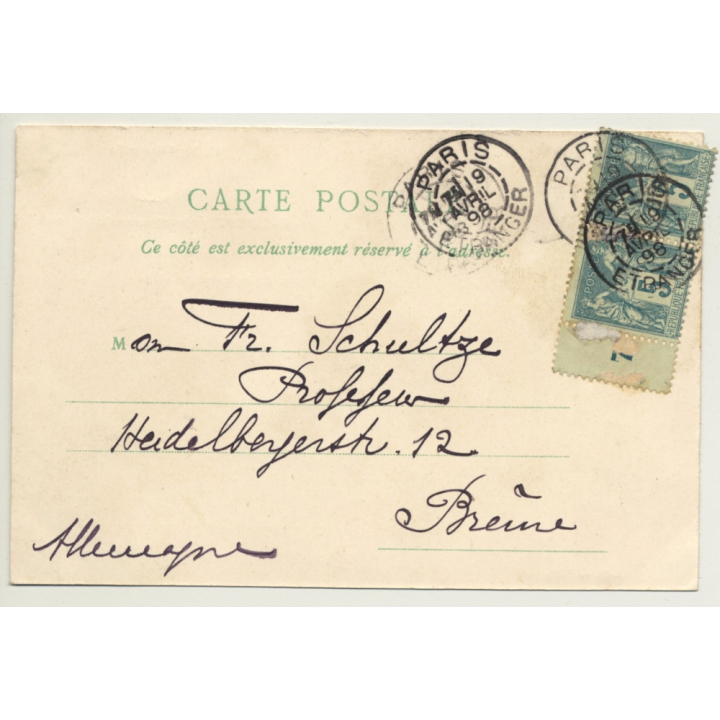 CARTE POSTALE
Ce côté est exclusivement réservé à l'adresse.
PARIS
19
AVRIL
98
ETRANGER
PARIS
PARIS
19
AVRIL
98
ETRANGER
5
7
Mon Fr. Schultze
Professeur
Heidelbergerstr. 12
Brême
Allemagne